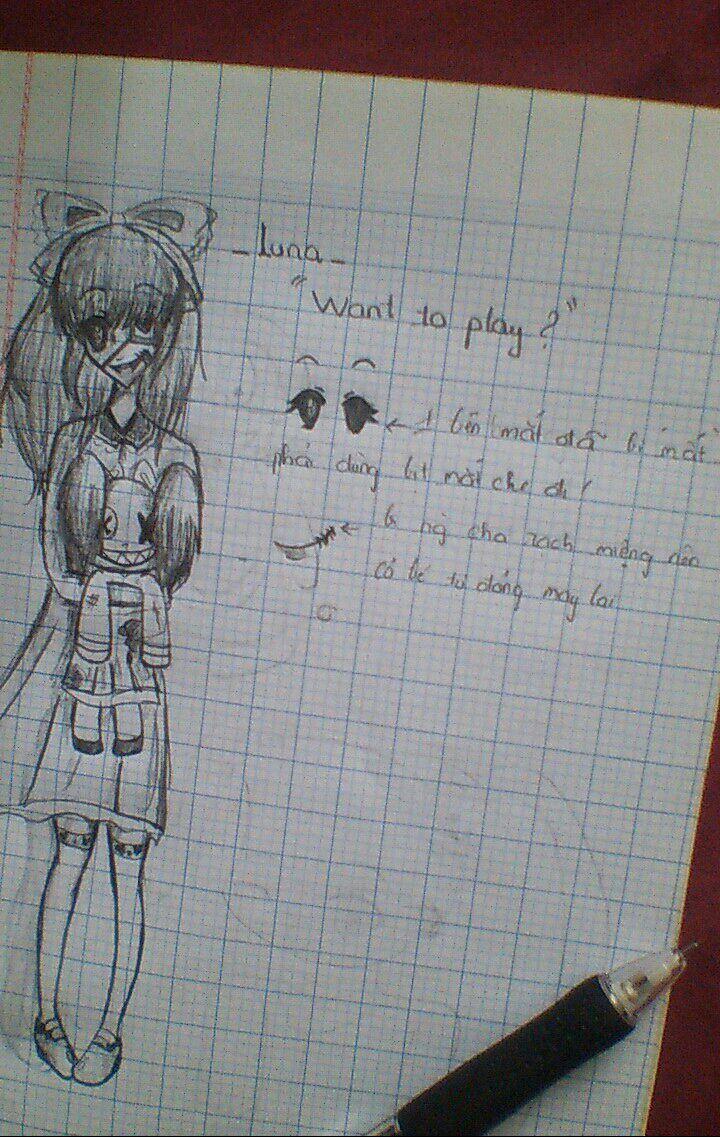 _luna_
"Want to play?"
← 1 bên mắt đã bị mất
phải dùng bịt mắt che đi!
← bị ng cha rạch miệng nên
cô bé tự động may lại